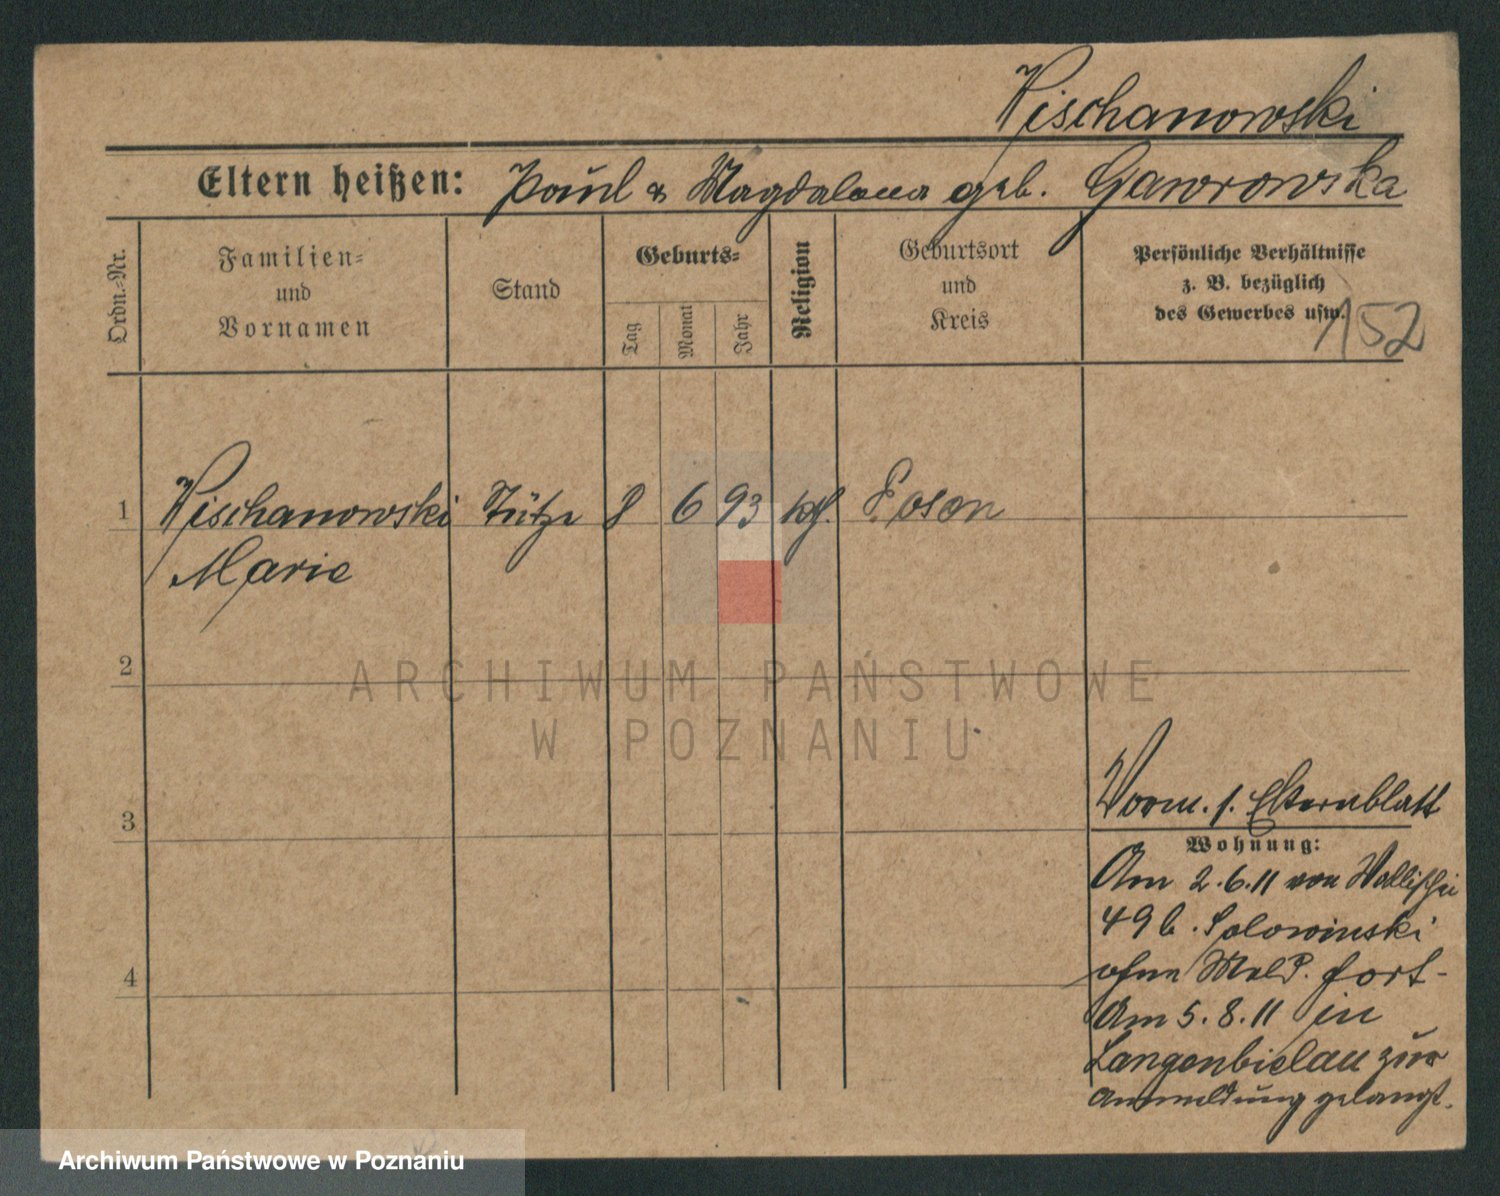 Wischanowski
Eltern heißen: Paul & Magdalena geb. Gaworowska
Ordn.-Nr.
Familien-
und
Vornamen
Stand
Geburts-
Tag
Monat
Jahr
Religion
Geburtsort
und
Kreis
Persönliche Verhältnisse
z. B. bezüglich
des Gewerbes usw.
152
1 Wischanowski Stütze 8 6 93 kth. Posen
Marie
2
3
4
Vorm. s. Elternblatt
Wohnung:
Am 2.6.11 von Wallischei
49 b. Solowinski
ohne Meld. fort.
Am 5.8.11 in
Langenbielau zur
Anmeldung gelangt.
ARCHIWUM PAŃSTWOWE
W POZNANIU
Archiwum Państwowe w Poznaniu